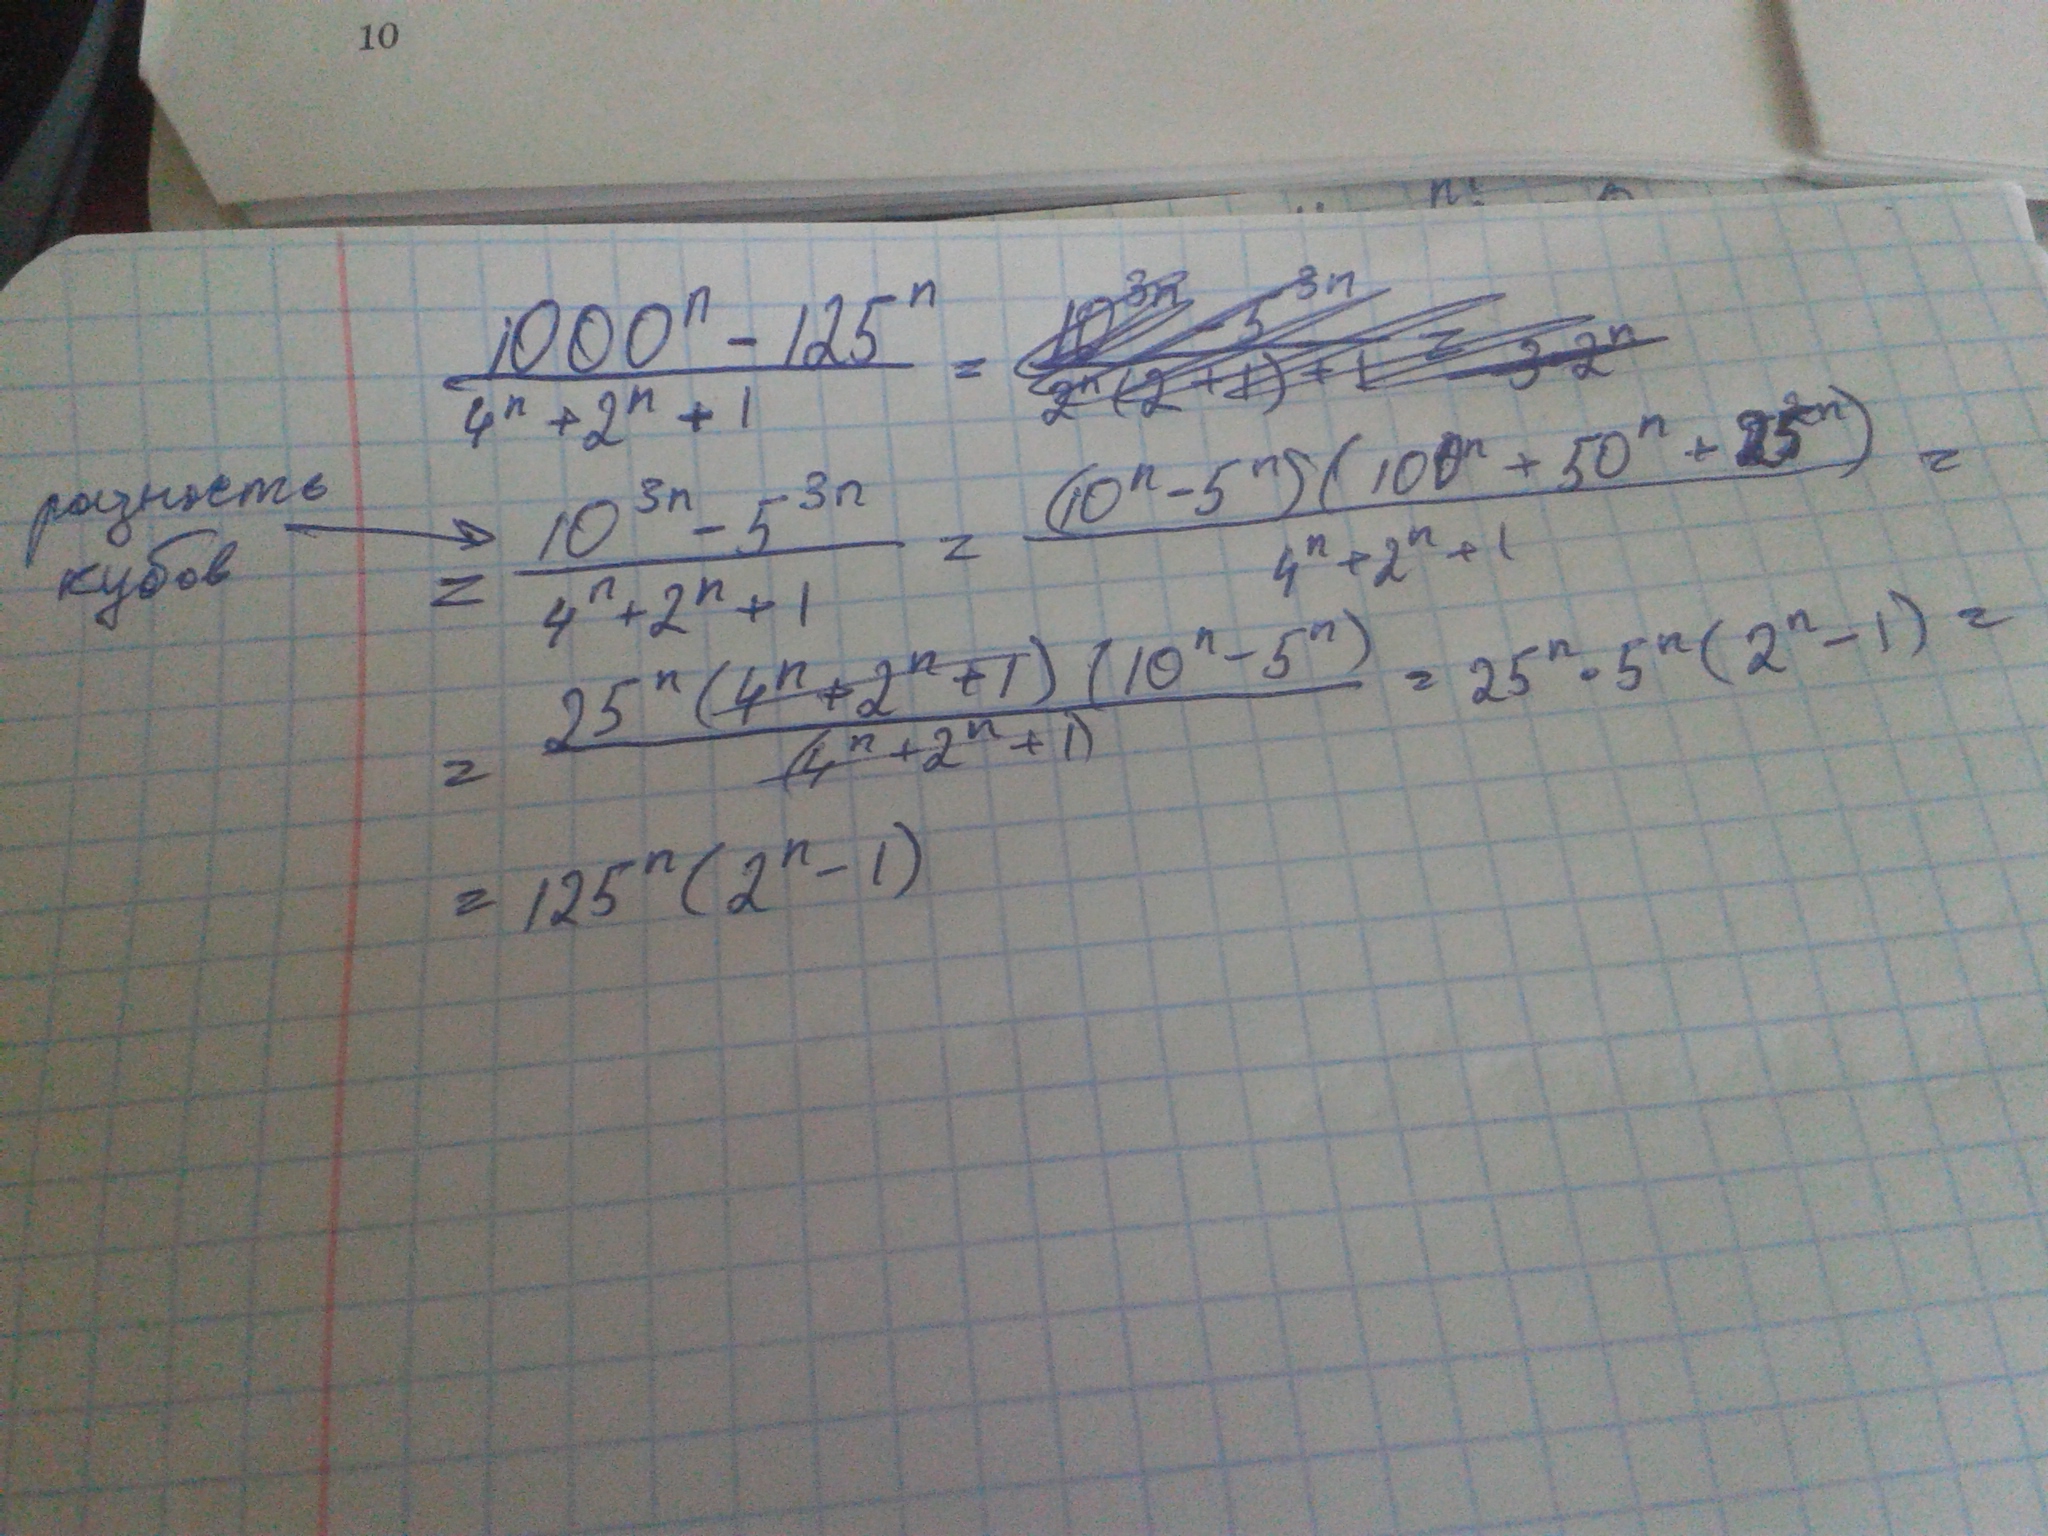 10
n!
1000ⁿ - 125ⁿ / 4ⁿ + 2ⁿ + 1 = 10³ⁿ - 5³ⁿ / 2ⁿ(2 + 1) + 1 = 3 2ⁿ
разность кубов → = 10³ⁿ - 5³ⁿ / 4ⁿ + 2ⁿ + 1 = (10ⁿ - 5ⁿ)(100ⁿ + 50ⁿ + 25ⁿ) / 4ⁿ + 2ⁿ + 1 =
= 25ⁿ(4ⁿ + 2ⁿ + 1)(10ⁿ - 5ⁿ) / (4ⁿ + 2ⁿ + 1) = 25ⁿ · 5ⁿ(2ⁿ - 1) =
= 125ⁿ(2ⁿ - 1)